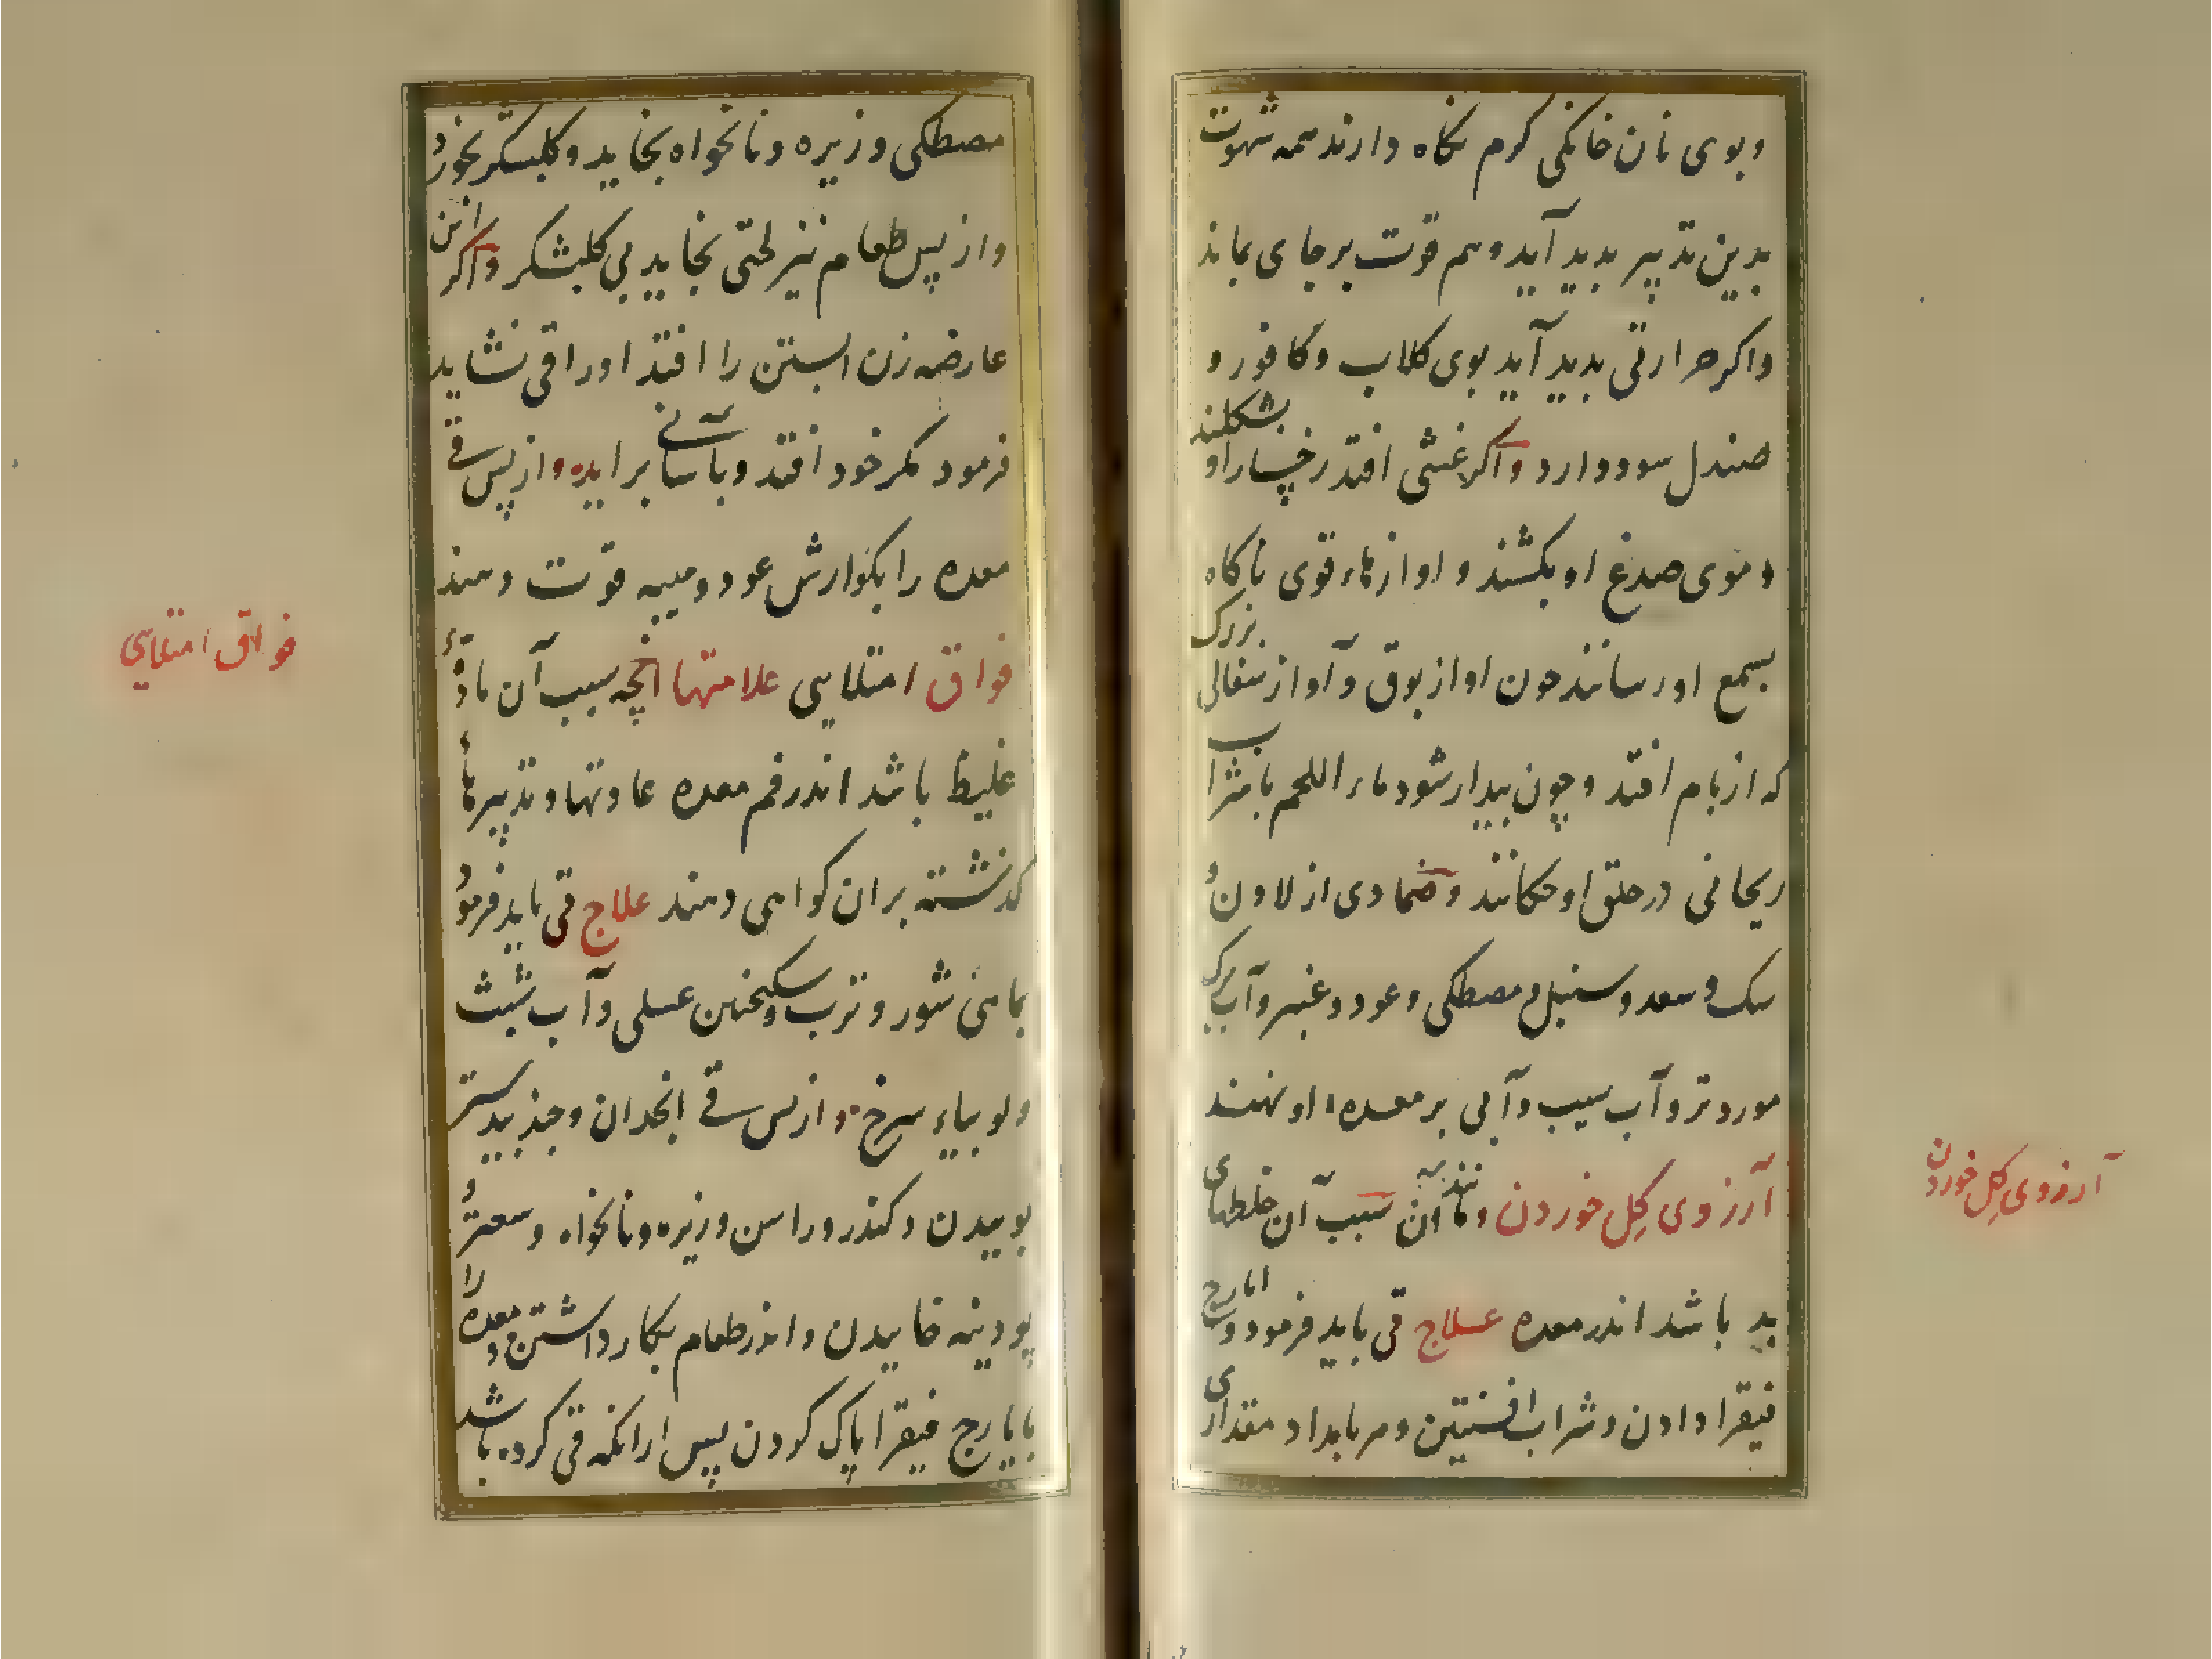 و بوی نان خانکی کرم نکاه دارند همه شهوت
بدین تدبیر بدید آید و هم قوت بر جای بماند
و اکر حرارتی بدید آید بوی کلاب و کافور و
صندل سود دارد و اکر غشی افتد رخسار او بشکلند
و موی صدغ او بکشند و اوازهاء قوی ناکاه
بسمع او رسانند جون اواز بوق و آواز سفالی بزرک
که از بام افتد و چون بیدار شود ماء اللحم با شراب
ریحانی در حلق او حکانند و ضمادی از لادن و
سک و سعد و سنبل و مصطکی و عود و عنبر و آب برک
مورد تر و آب سیب و آبی بر معده او نهند
آرزوی کِل خوردن و مانند آن سبب آن خلطهای
بد باشد اندر معده علاج قی باید فرمود و ایارج
فیقرا دادن و شراب افسنتین و هر بامداد مقداری
آرزوی کِل خوردن
مصطکی و زیره و نانخواه بخاید و کلبشکر بخورد
و از پس طعام نیز لختی بخاید بی کلبشکر و اکر این
عارضه زن ابستن را افتد او را قی نشاید
فرمود مکر خود افتد و باسانی براید و از پس قی
معده را بکوارش عود و میبه قوت دهند
فواق امتلایی علامتها انچه سبب آن مادّهٔ
غلیظ باشد اندر فم معده عادتها و تدبیرهاء
کذشته بران کواهی دهند علاج قی باید فرمود
بماهی شور و ترب و سکنجبین عسلی و آب شبث
و لوبیاء سرخ و از پس قی انجدان و جندبیدستر
بوییدن و کندر و راسن و زیره و نانخواه و سعتر و
پودینه خاییدن و اندر طعام بکار داشتن و معده را
بایارج فیقرا پاک کردن پس ازانکه قی کرده باشد
فواق امتلایی